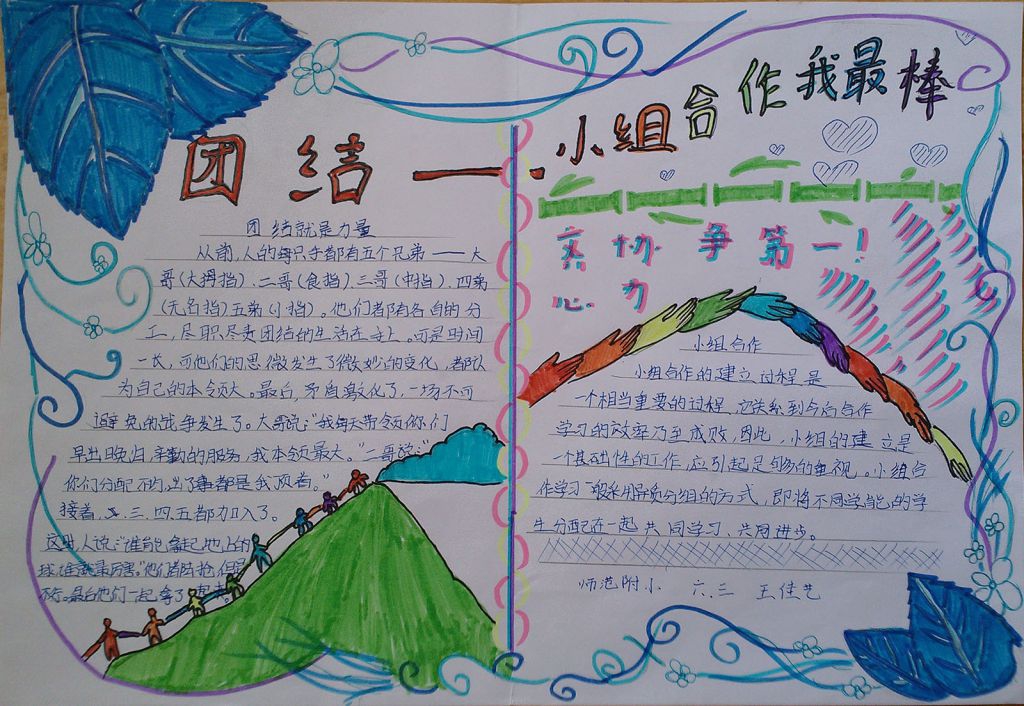 团结——
小组合作我最棒
团结就是力量
从前,人的每只手都有五个兄弟——大
哥(大拇指)、二哥(食指)、三哥(中指)、四弟
(无名指)五弟(小指)。他们都有各自的分
工,尽职尽责团结的生活在手上。可是时间
一长,可他们的思微发生了微妙的变化,都认
为自己的本领大。最后,矛盾激化了,一场不可
避免的战争发生了。大哥说:“我每天带领你们
早出晚归,辛勤的服务,我本领最大。”二哥说:“
你们分配不均,出了事都是我顶着。”
接着,三、三、四、五都加入了。
这时人说:“谁能拿起地上的
球谁就最厉害。”他们都去抢,但是
不行。最后他们一起拿了起来。
齐心协力争第一!
小组合作
小组合作的建立过程是
一个相当重要的过程,它关系到今后合作
学习的效率乃至成败,因此,小组的建立是
一个基础性的工作,应引起足够多的重视。小组合
作学习一般采用异质分组的方式,即将不同学能的学
生分配在一起共同学习,共同进步。
师范附小 六.三 王佳艺